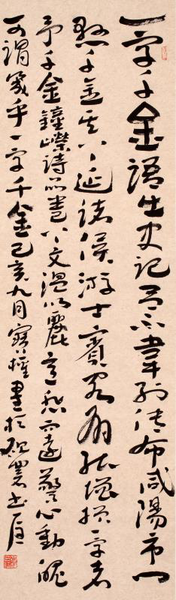 一字千金語出史記呂不韋列傳布咸陽市門
懸千金其上延諸侯游士賓客有能增損一字者
予千金鐘嶸詩品卷上文溫以麗意悲而遠驚心動魄
可謂幾乎一字千金己亥九月書於